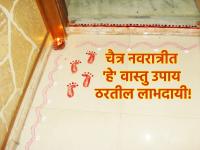 चैत्र नवरात्रीत
'हे' वास्तु उपाय
ठरतील लाभदायी!